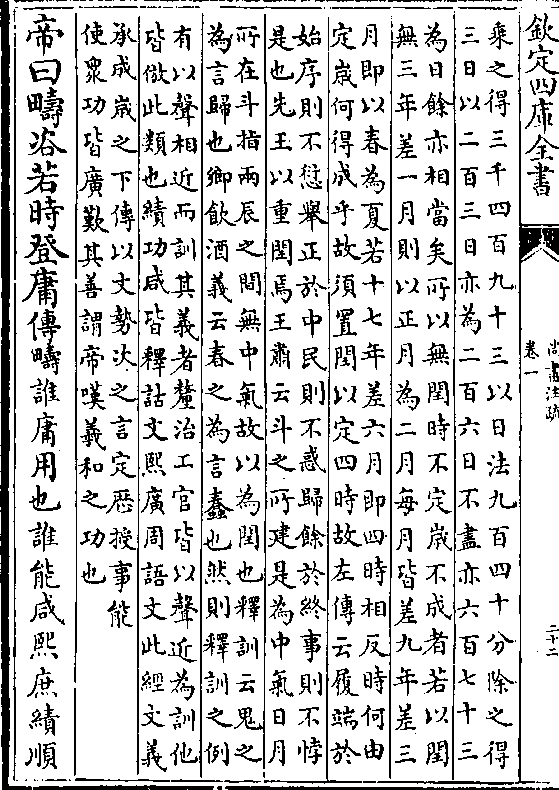 欽定四庫全書
尚書注疏
卷一
二十二
乘之得三千四百九十三以日法九百四十分除之得
三日以二百三日亦為二百六日不盡亦六百七十三
為日餘亦相當矣所以無閏時不定歲不成者若以閏
無三年差一月則以正月為二月每月皆差九年差三
月即以春為夏若十七年差六月即四時相反時何由
定歲何得成乎故須置閏以定四時故左傳云履端於
始序則不愆舉正於中民則不惑歸餘於終事則不悖
是也先王以重閏焉王肅云斗之所建是為中氣日月
所在斗指兩辰之間無中氣故以為閏也釋訓云鬼之
為言歸也鄉飲酒義云春之為言蠢也然則釋訓之例
有以聲相近而訓其義者釐治工官皆以聲近為訓他
皆倣此類也績功咸皆釋詁文熙廣周語文此經文義
承成歲之下傳以文勢次之言定厯授事能
使衆功皆廣歎其善謂帝嘆羲和之功也
帝曰疇咨若時登庸傳疇誰庸用也誰能咸熙庶績順